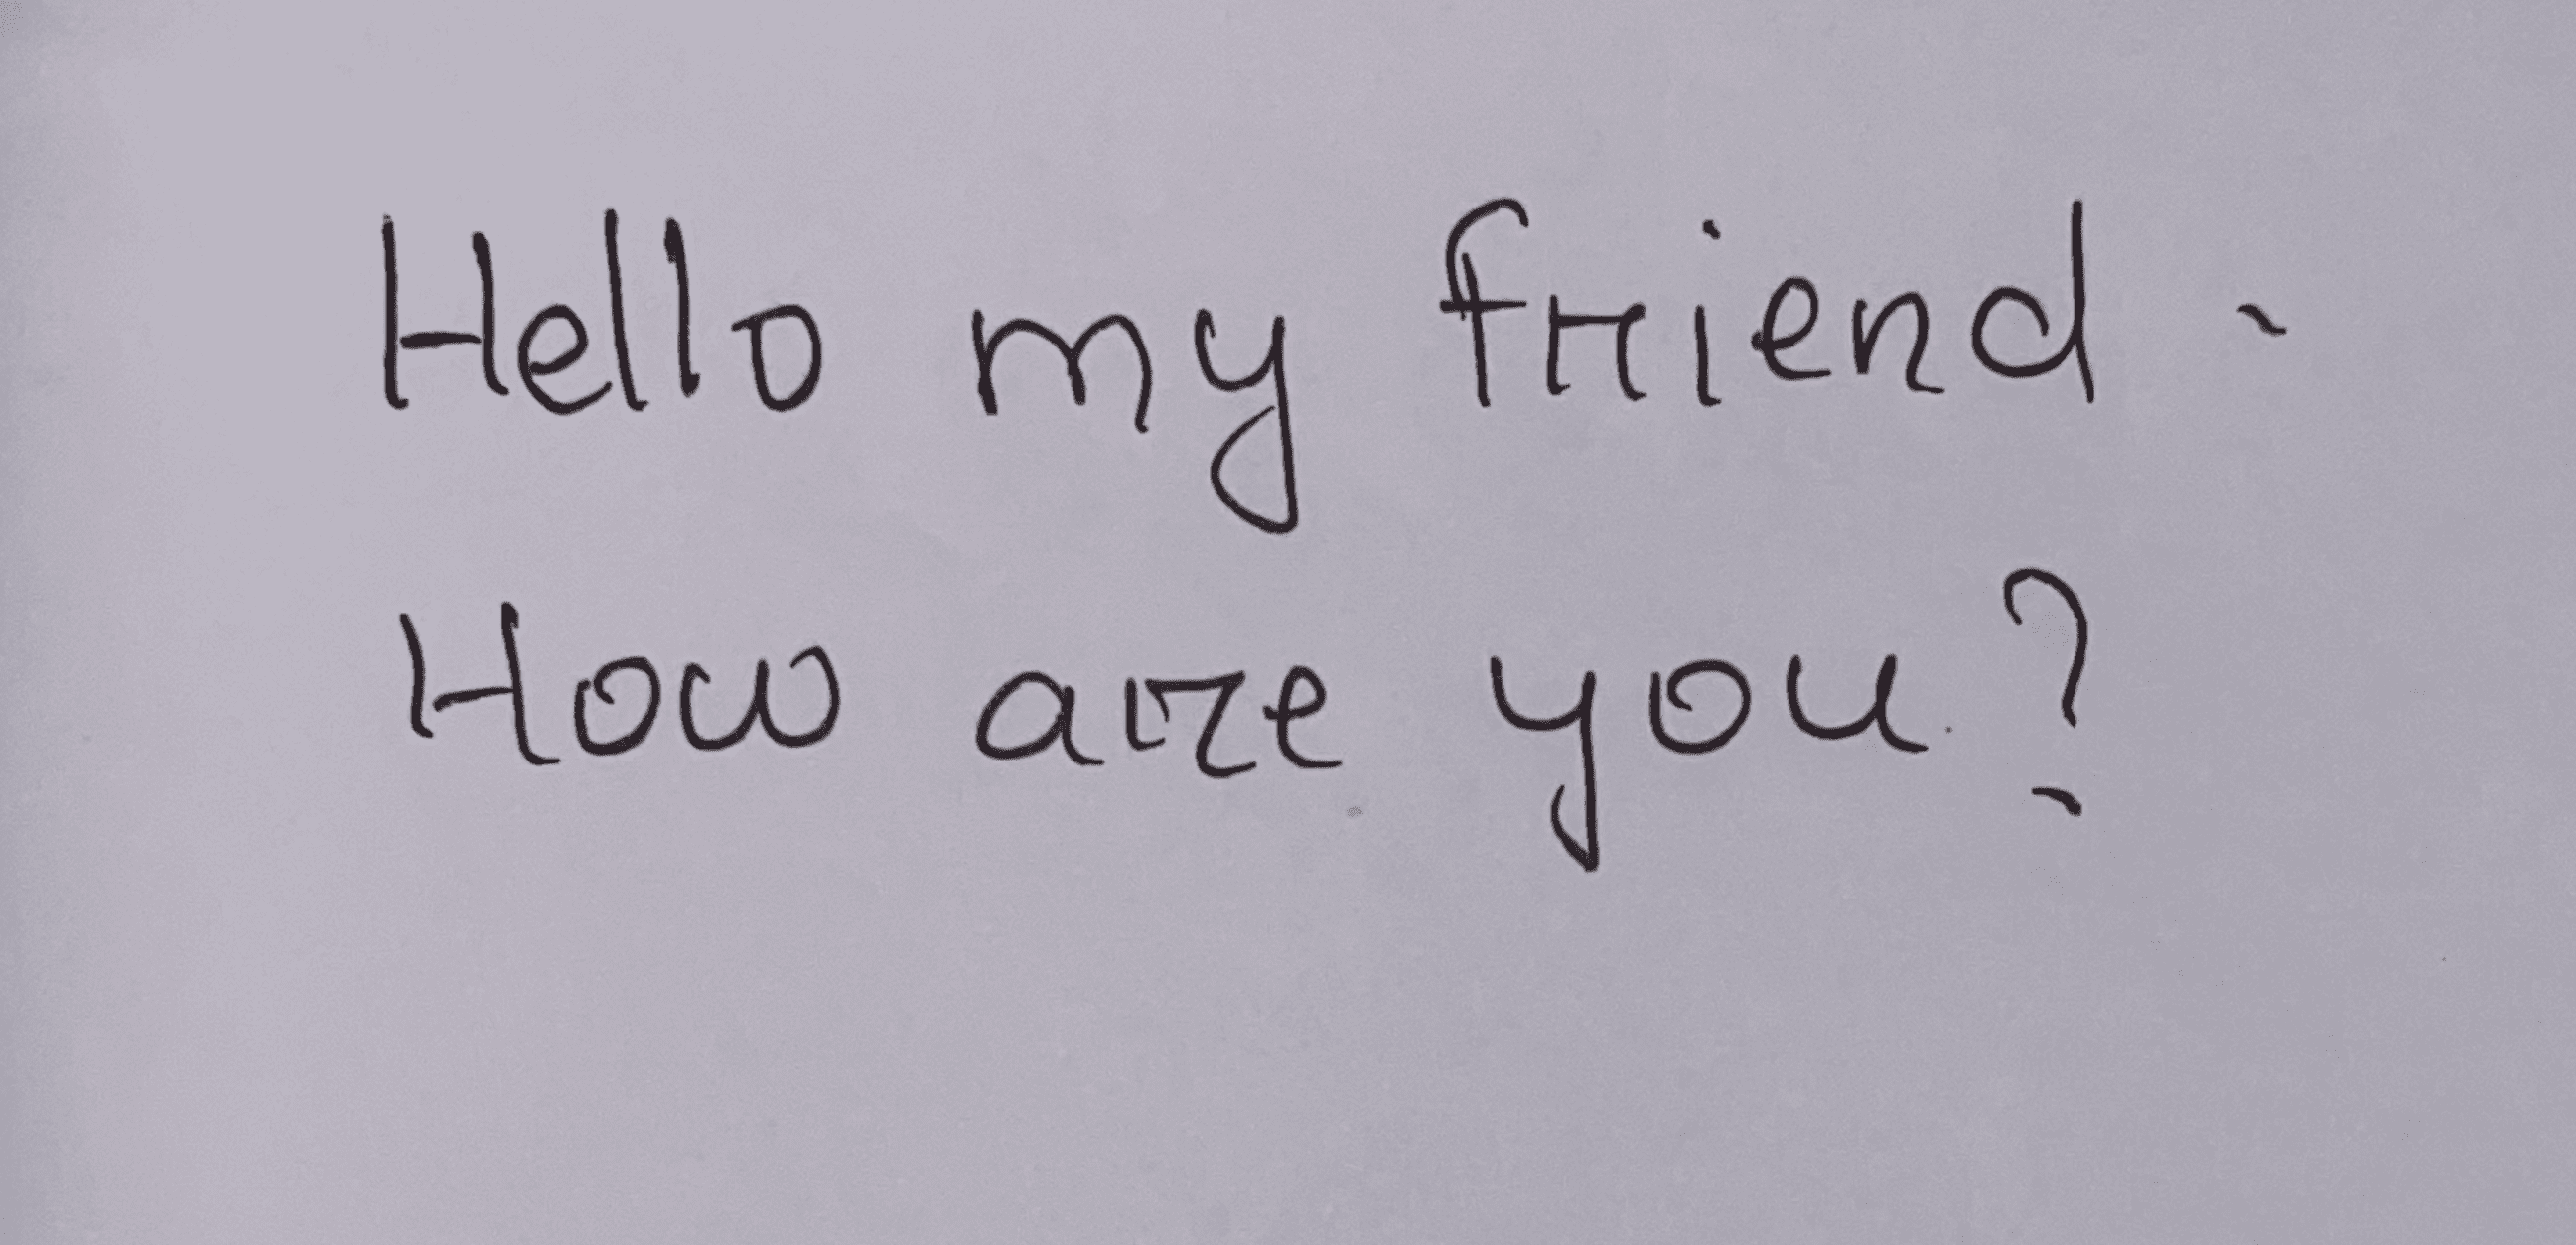 Hello my friend -
How are you?